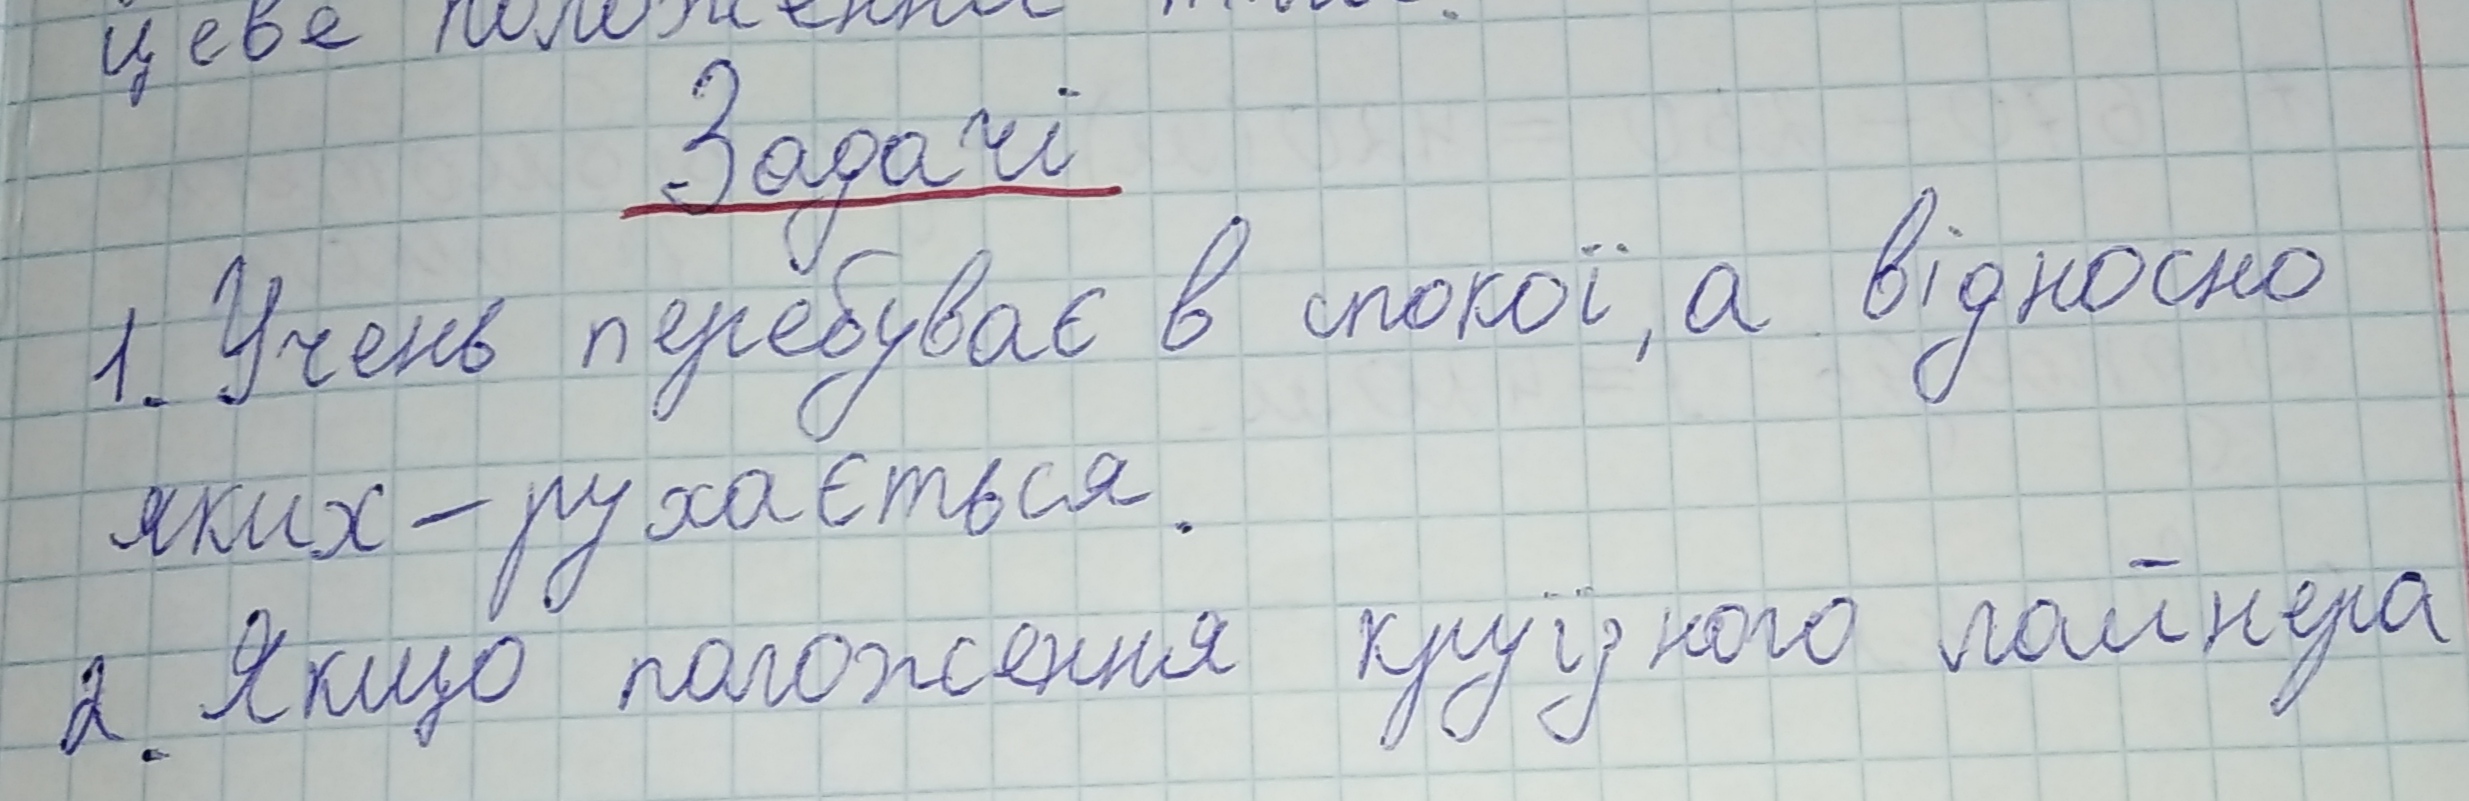 цеве положення тіла.
Задачі
1. Учень перебуває в спокої, а відносно
яких - рухається.
2. Якщо положення круїзного лайнера